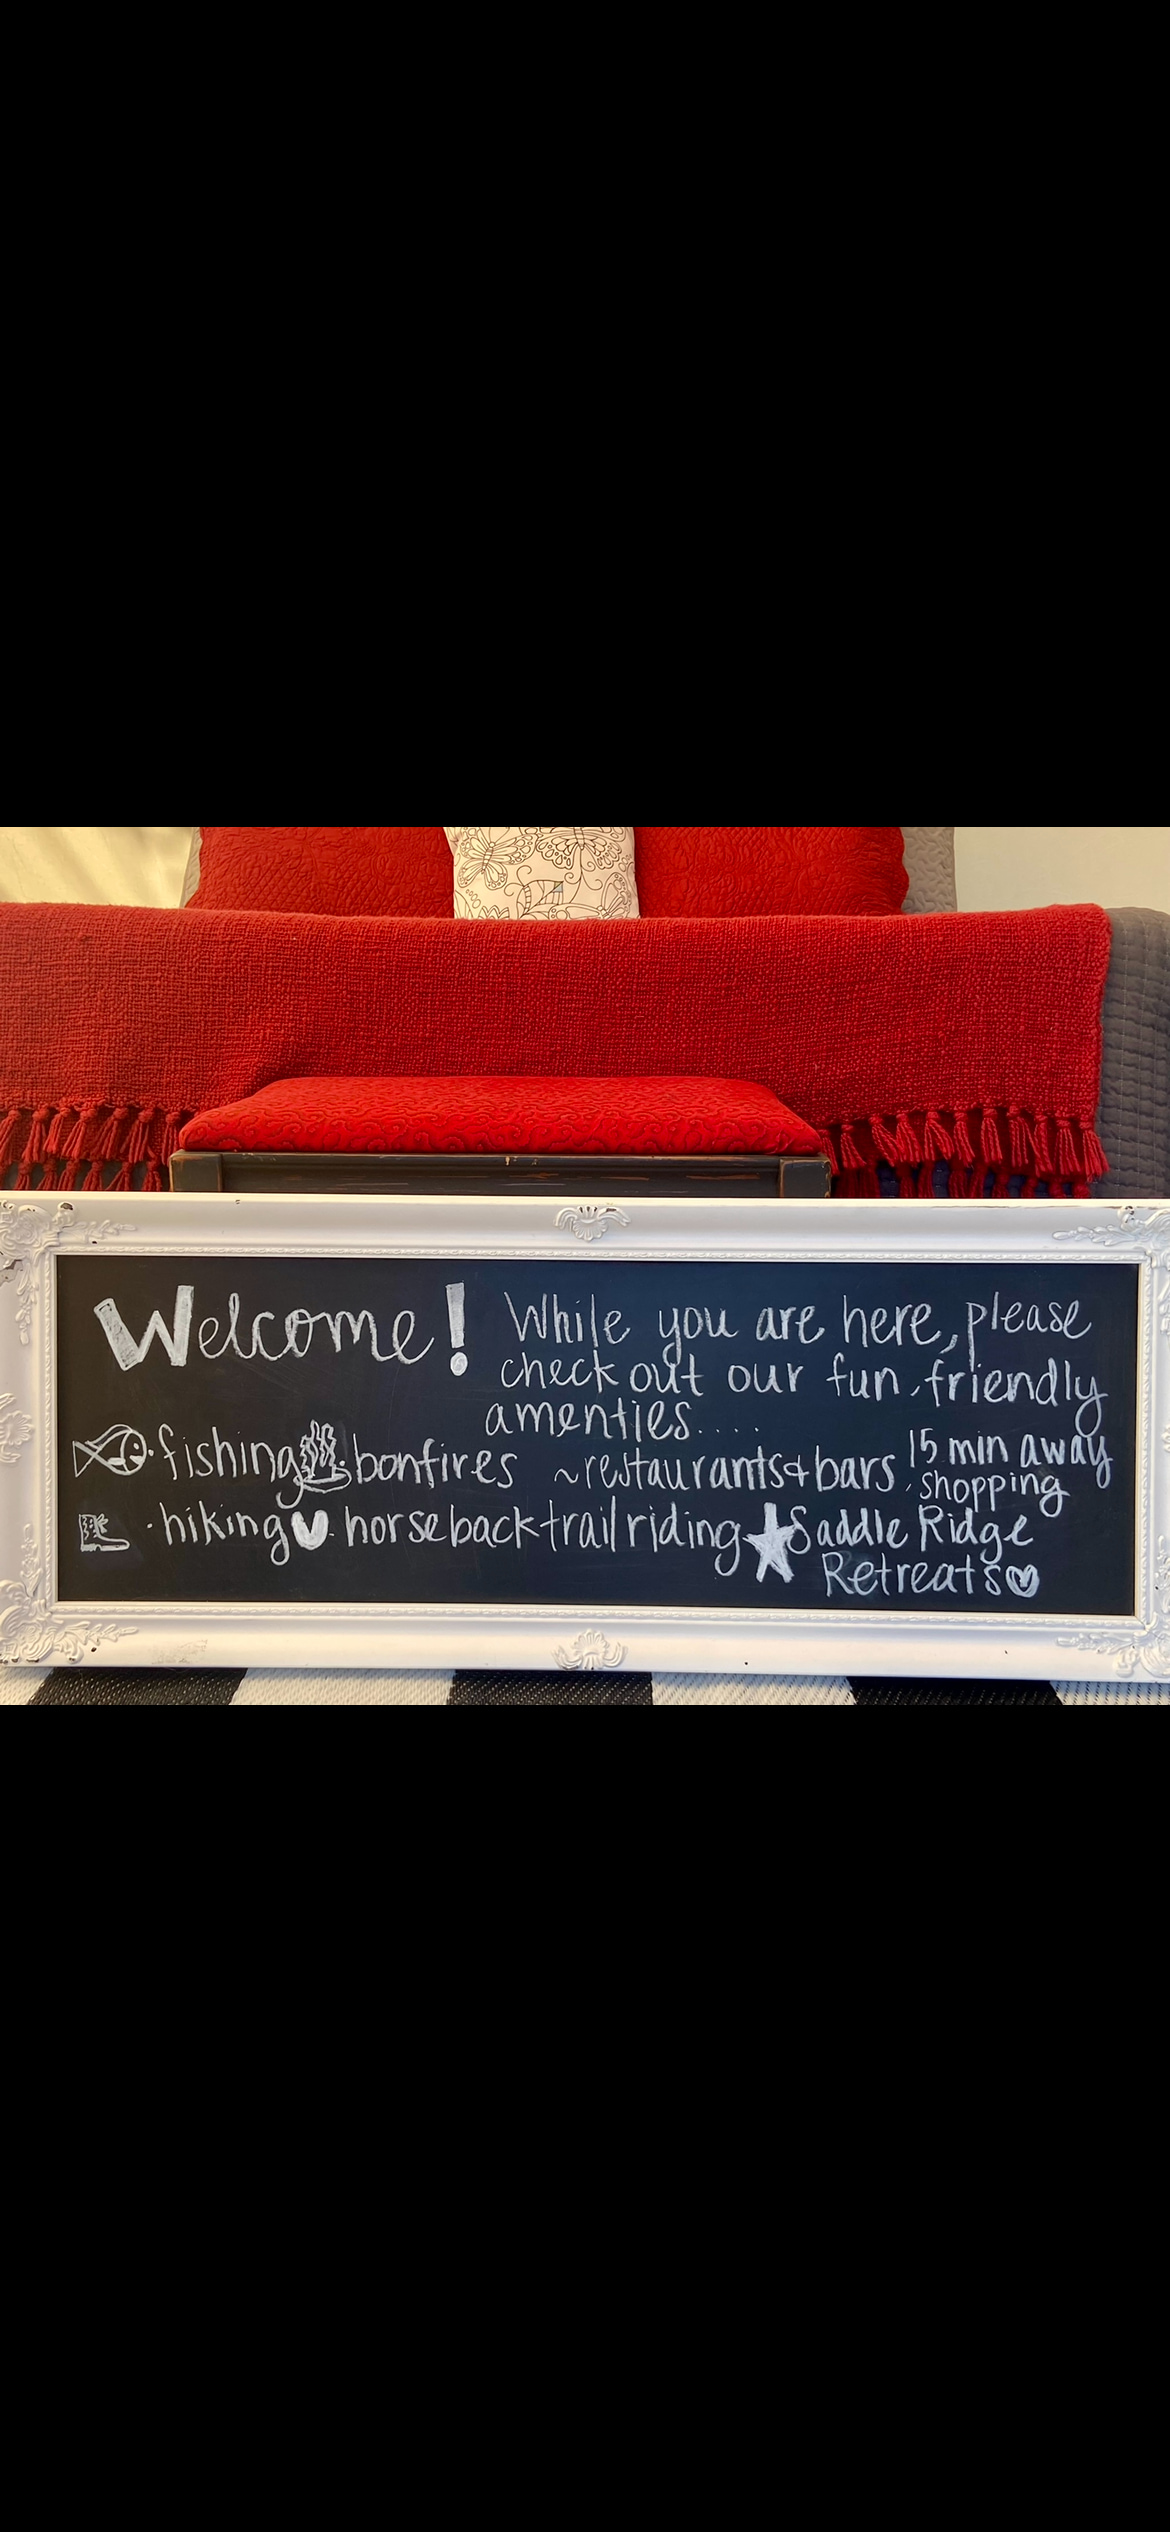 Welcome! While you are here, please
check out our fun, friendly
amenties....
·fishing ·bonfires ~restaurants & bars 15 min away
·shopping
·hiking · horseback trail riding Saddle Ridge
Retreats